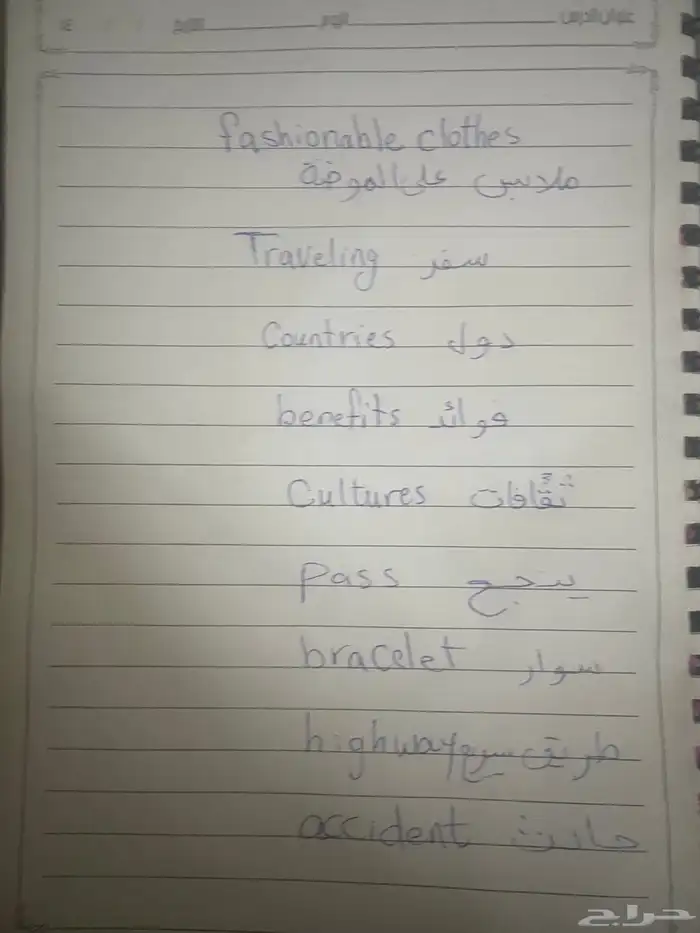 عنوان الدرس اليوم التاريخ
fashionable clothes
ملابس على الموضة
Traveling سفر
Countries دول
benefits فوائد
Cultures ثقافات
pass ينجح
bracelet سوار
highway طريق سريع
accident حادث
حراج